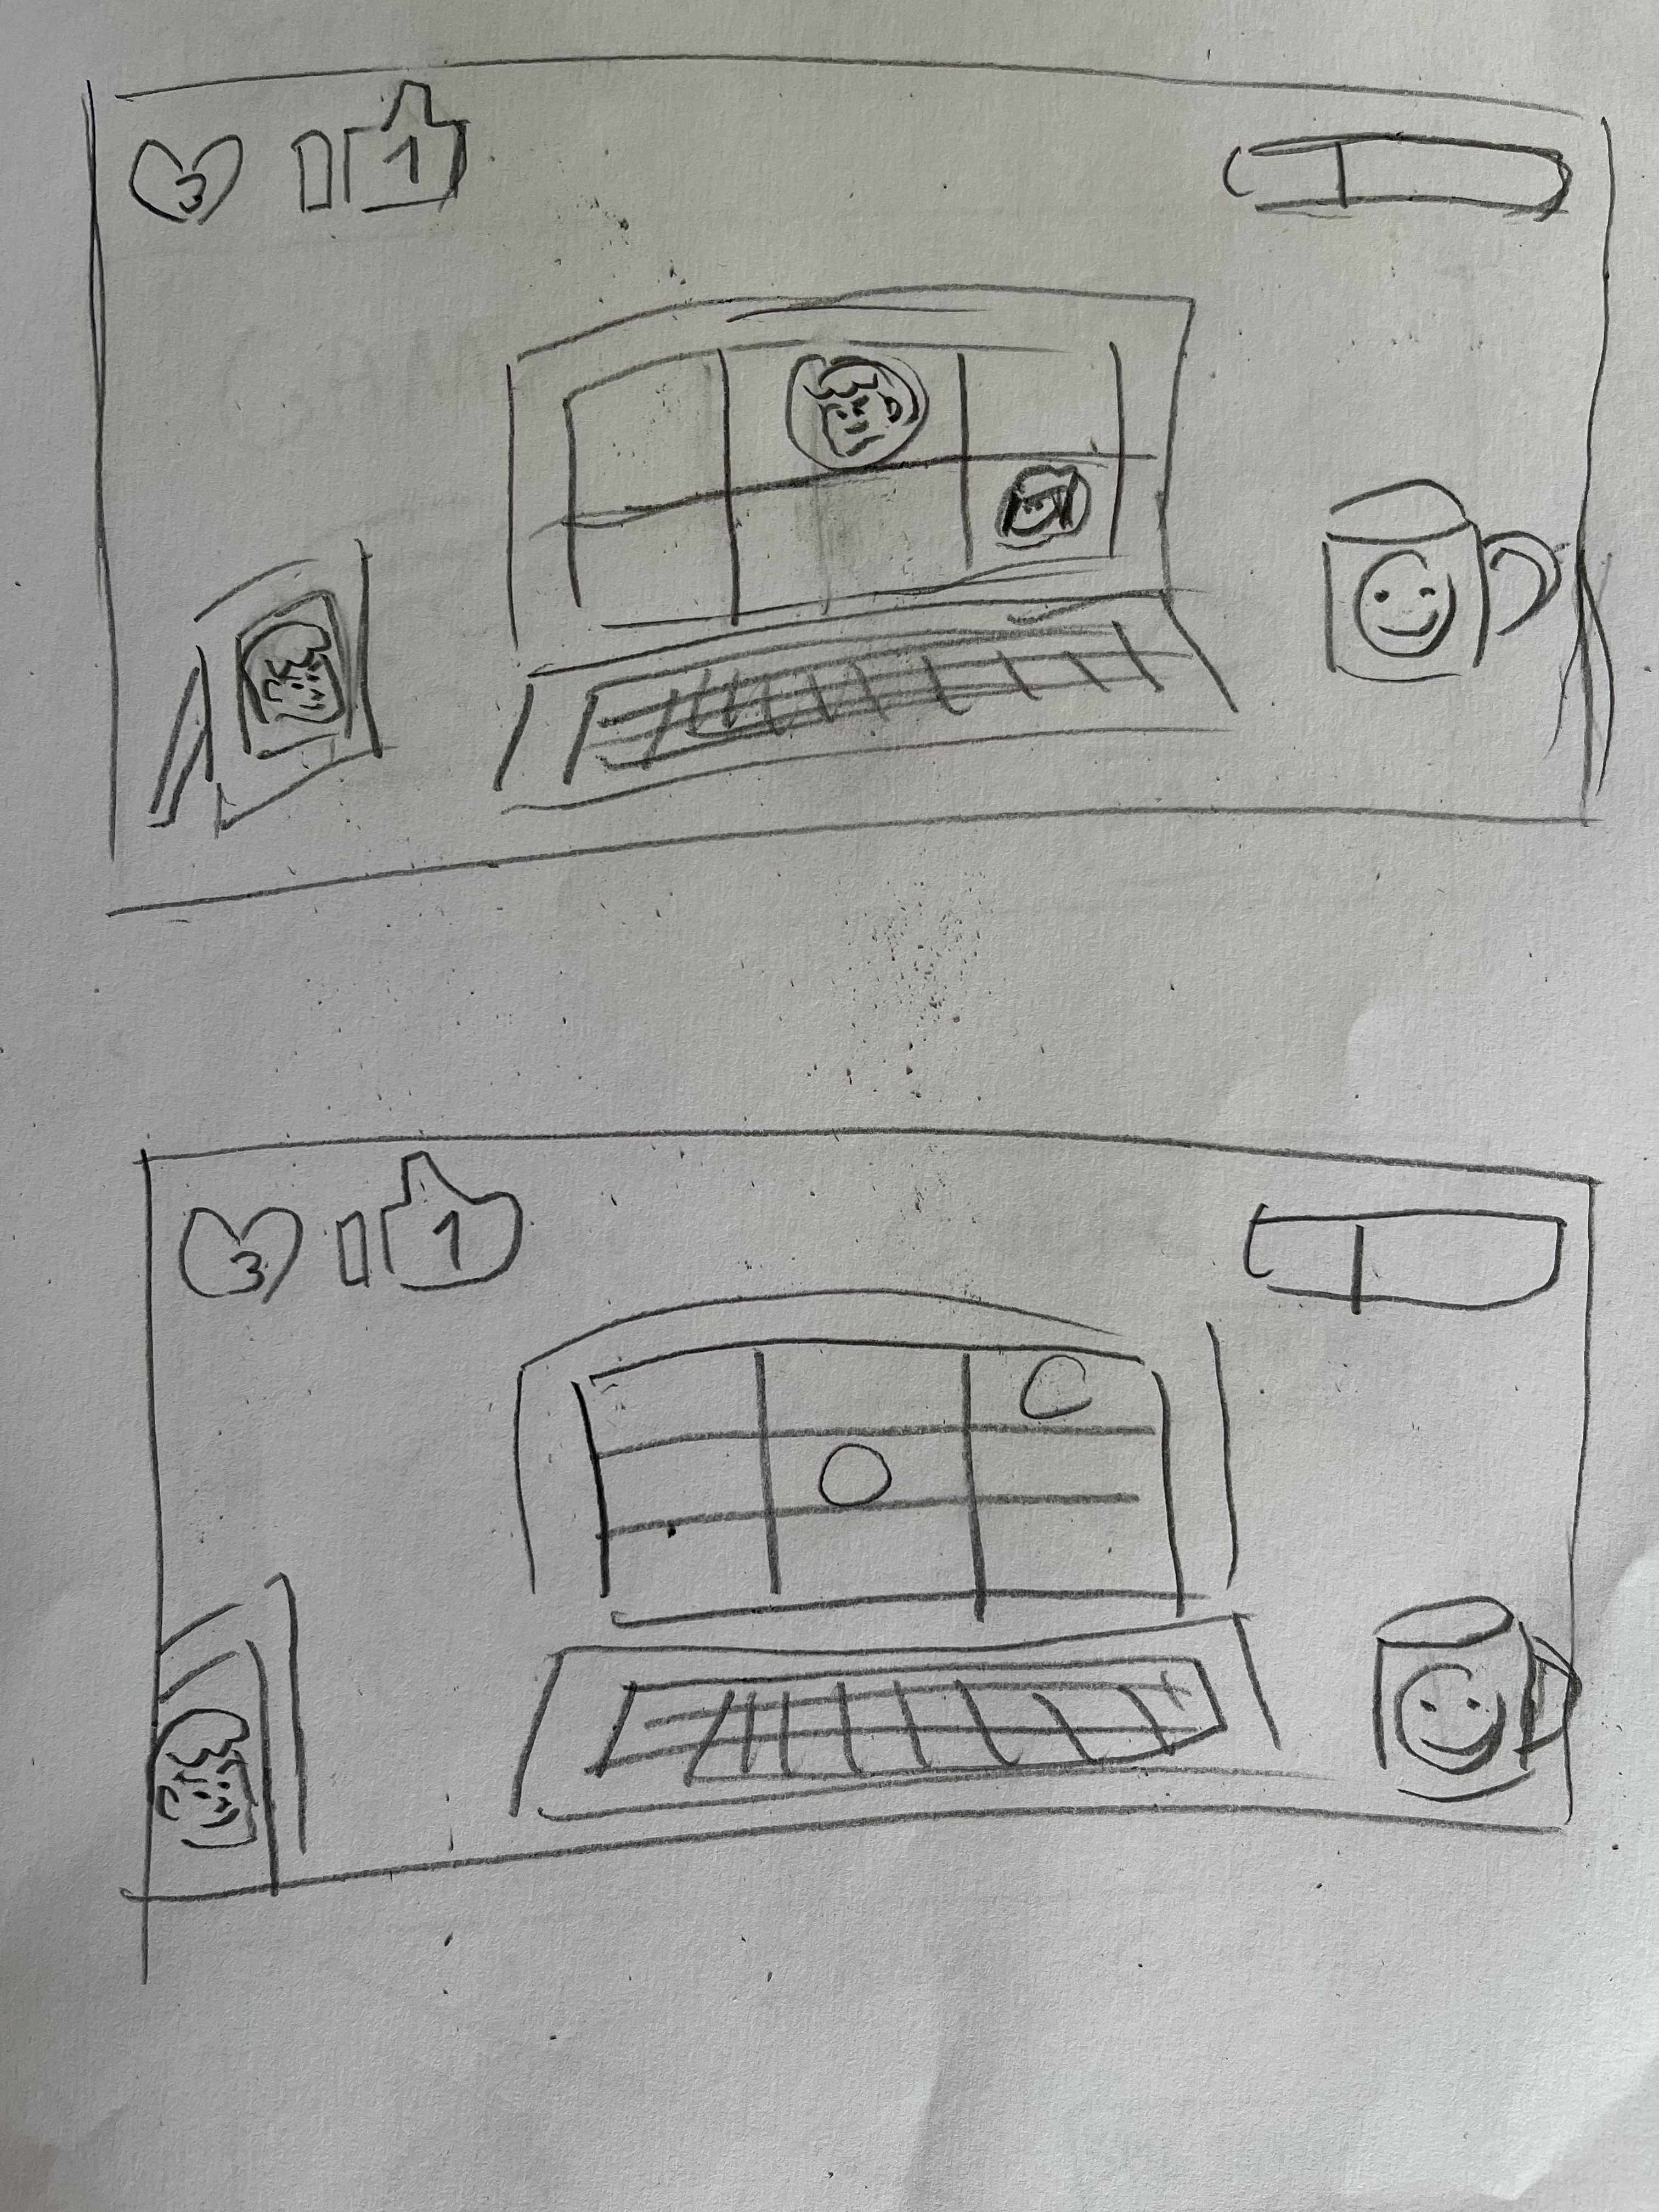 3 1
3 1